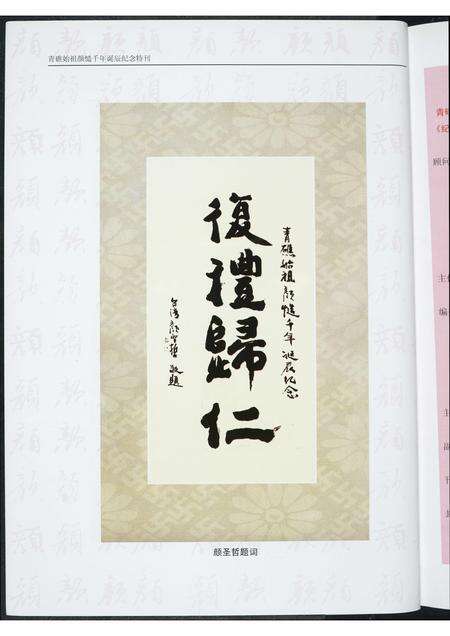 青礁始祖颜慥千年诞辰纪念特刊
青礁始祖顔慥千年诞辰纪念
復禮歸仁
台湾颜圣哲敬題
颜圣哲题词
青礁
《纪
顾问
主
编
主
副